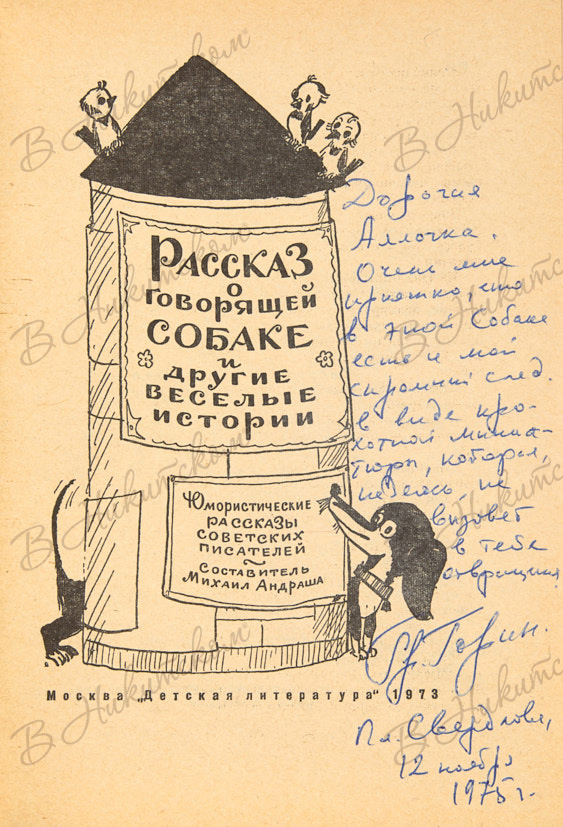 Рассказ
о
говорящей
собаке
и
другие
веселые
истории
Юмористические
рассказы
советских
писателей
Составитель
Михаил Андраша
Москва „Детская литература" 1973
Дорогая
Аллочка.
Очень мне
приятно, что
в этой Собаке
есть и мой
скромный след.
в виде кро-
хотной миниа-
тюры, которая,
надеюсь, не
вызовет
в тебе
отвращения
Гр. Горин.
Пл. Свердлова,
12 ноября
1975 г.
В. Никитском